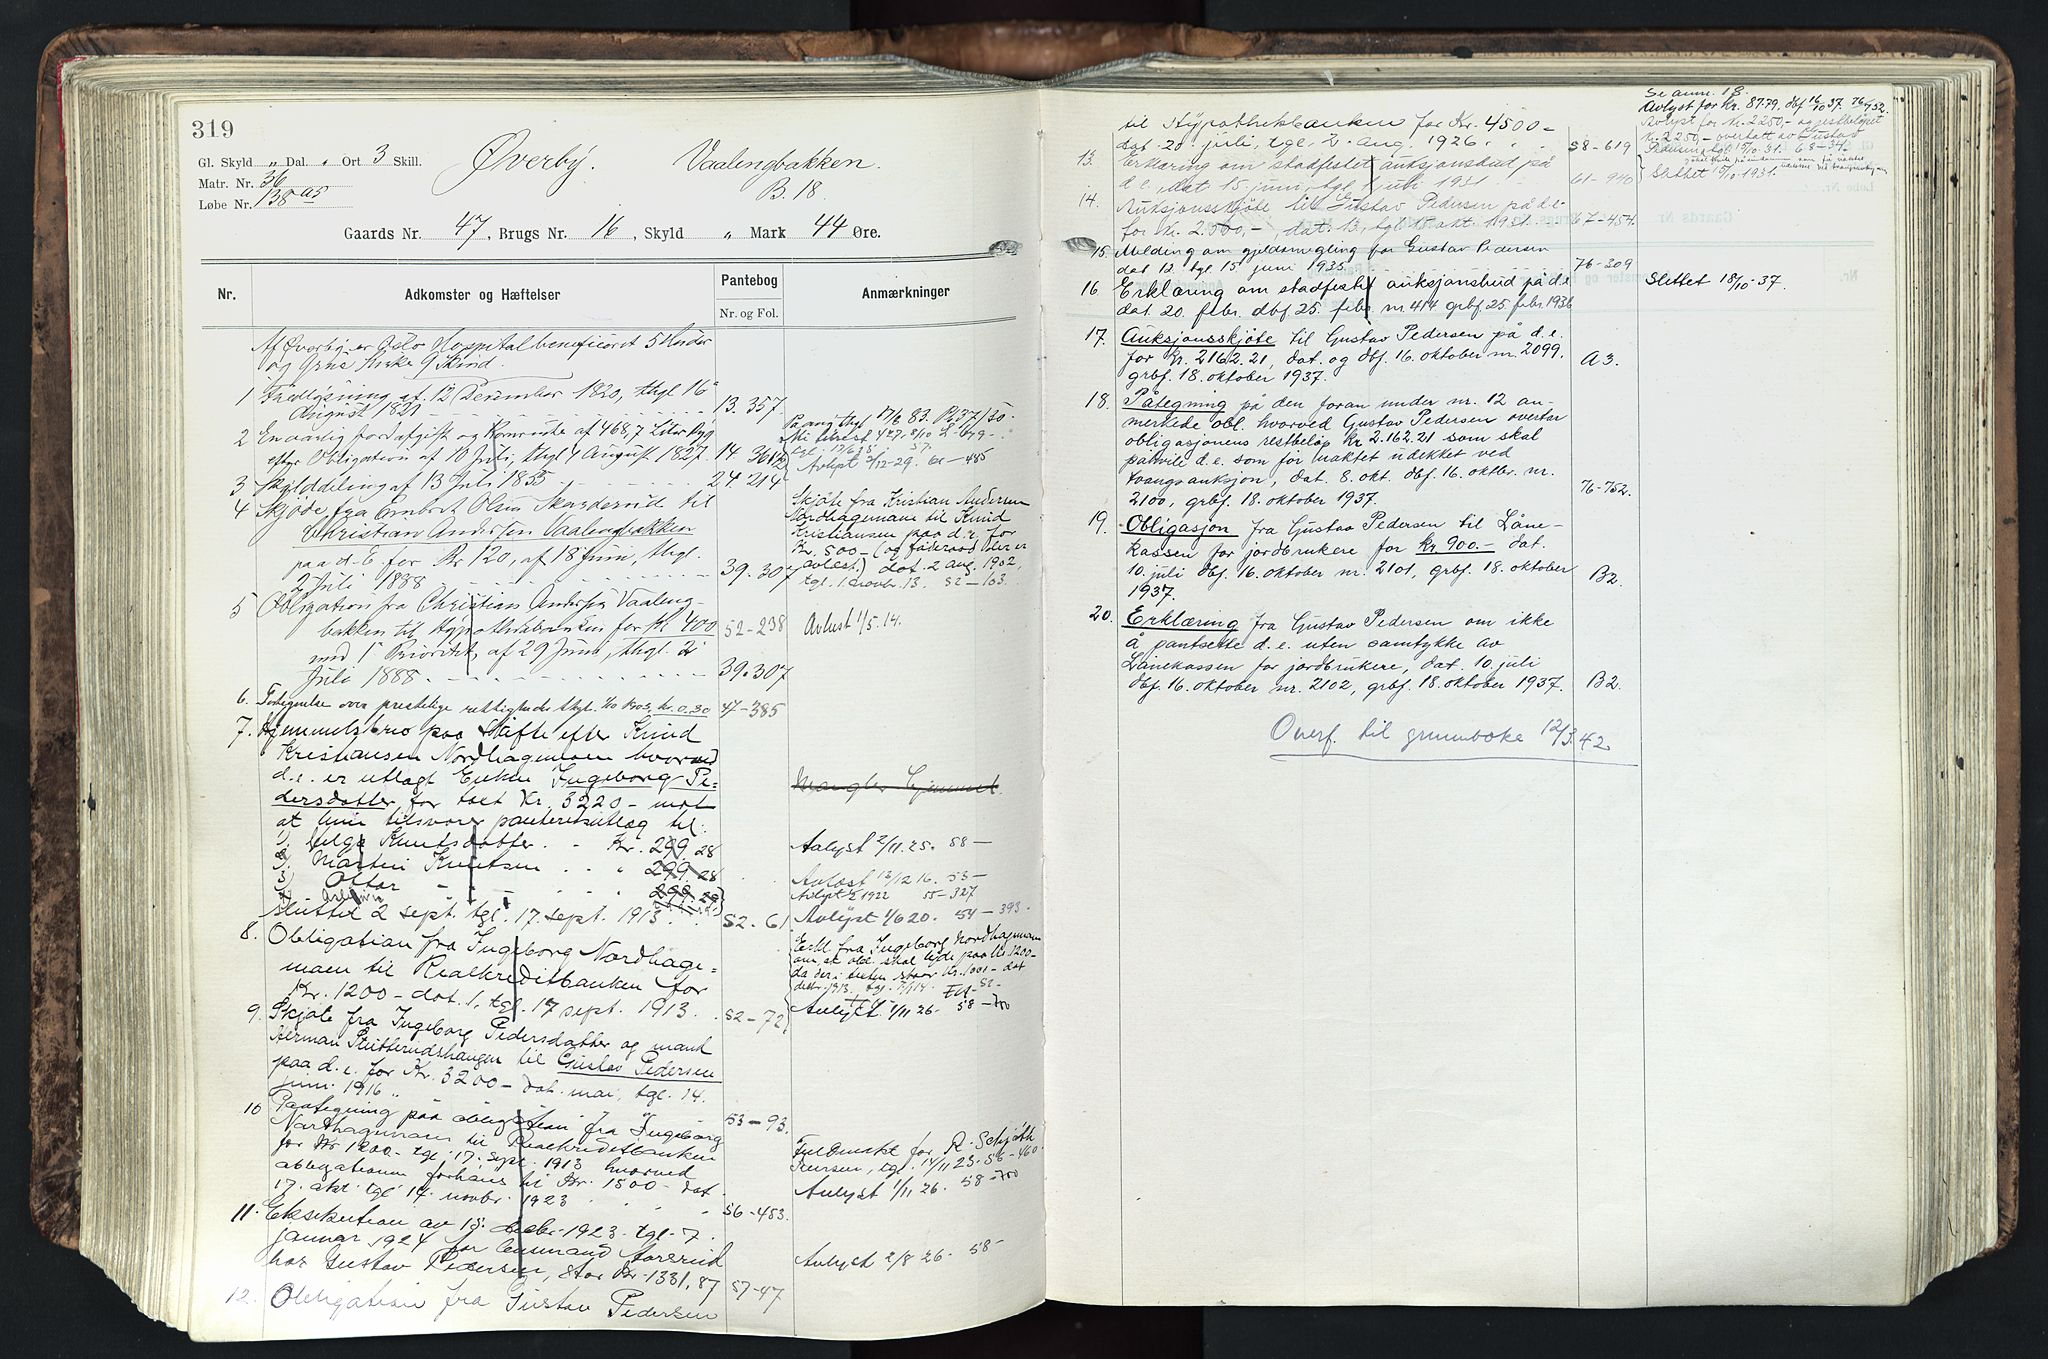 319
Gl. Skyld „ Dal. „ Ort 3 Skill.
Øverby. Vaalengbakken.
Matr. Nr. 36
B. 18
Løbe Nr. 138 a 95
Gaards Nr. 47, Brugs Nr. 16, Skyld „ Mark 44 Øre.
Nr. Adkomster og Hæftelser Pantebog Nr. og Fol. Anmærkninger
Af Øverby er Oslo Hospital beneficeret 5 Huder
og Grue Kirke 9 Skind.
1 Fredløsning af 12 December 1820, thgl. 16
August 1821 13. 357
2 En aarlig Jordafgift og Kornrente af 468,7 Liter Byg
efter Obligation af 10 Juli, thgl. 1 August 1827. 14. 361/2
Avlyst 2/12-29. 61-485
3 Skylddeling af 13 Juli 1855 24. 214
4 Skjøde fra Embret Olsen Skarderud til
Christian Andersen Vaalengbakken
paa d. E. for Kr 120, af 18 Juni, thgl.
2 Juli 1888 39. 307
Skjøte fra Kristian Andersen
Nordhagemoen til Knud
Kristiansen paa d. e. for
Kr. 500 - (og föderaad der er
avlest.) dat. 2 aug. 1902,
tgl. 1. novbr. 13. 52-103.
5 Obligation fra Christian Andersen Vaaleng-
bakken til Hypothekbanken for Kr 400 52-238 Avlyst 1/5.14.
med 1 Prioritet, af 29 Juni, thgl. 2
Juli 1888. 39. 307
6. Fortegnelse over prestelige rettigheder thgl. kr. 0,30 47-385
7. Hjemmelsbrev paa Skifte efter Knud
Kristiansen Nordhagemoen hvorved
d. e. er utlagt Enken Ingeborg Pe-
dersdatter for taxt Kr. 3220 - mot Mangler hjemmel.
at hun tilsvarer panteretsutlæg til:
1) Helga Knutsdatter. Kr. 299.28 Avlyst 2/11.25. 58-
2) Martin Knutsen " 299.28
3) Ottar " 299.28 Avlest 13/12 16. 53-
Avlyst 1922 55-327
sluttet 2 sept. tgl. 17. sept. 1913. 52-61 Avlyst 1/6 20. 54-393.
8. Obligation fra Ingeborg Nordhage-
moen til Realkreditbanken for
Kr. 1200 - dat. 1, tgl. 17 sept. 1913. 52-72
Erkl. fra Ingeborg Nordhagemoen
om, at obl. skal lyde paa Kr. 1200-
da der i teksten staar Kr. 1001 - dat
Avlyst 1/11 26. 58-700
9. Skjøte fra Ingeborg Pedersdatter og mand
Herman Slutterudshaugen til Gustav Pedersen
paa d. e. for Kr. 3200 - dat. mai, tgl. 14.
juni 1916 53-93.
10 Paategning paa obligation fra Ingeborg
Northagemoen til Realkreditbanken
for Kr 1200 - tgl. 17. sept. 1913 hvorved
obligationen forhøies til Kr. 1500 - dat.
17. okt. tgl 14. novbr. 1923 56-453.
Fuldmakt for R. Schjøth
Iversen, tgl. 14/11 23. 56-460
Avlyst 1/11 26. 58-700
11. Eksekution av 15. decbr. 1923 tgl. 7.
januar 1924 for Amund Aaserud
hos Gustav Pedersen, stor Kr. 1331,87 57-47 Avlyst 2/8 26. 58-
12. Obligation fra Gustav Pedersen
til Hypothekbanken for Kr. 4500-
dat. 20. juli, tgl. 2. Aug. 1926. 58-619
Se anm. 18.
Avlyst for kr. 8779. dbf 16/10 37. 76/752.
Avlyst for Kr. 2250,- og restbeløpet
Kr. 2250,- overtatt av Gustav
Pedersen tgl 15/10.31. 63-34.
13. Erklæring om stadfestet auksjonsbud på
d. e., dat 15 juni, tgl 1 juli 1931. 61-940 Slettet 15/10.1931.
14. Auksjonsskjøte til Gustav Pedersen på d. e.
for Kr. 2500,-, dat. 13, tgl. 15 okt. 1931. 67-454.
15. Melding om gjeldsmegling for Gustav Pedersen
dat. 12. tgl. 15 juni 1935. 76-309
16. Erklæring om stadfestet auksjonsbud på d. e. Slettet 18/10-37.
dat. 20. febr. dbf 25. febr. nr 414 grbf. 25 febr. 1936
17. Auksjonsskjøte til Gustav Pedersen på d. e.
for kr. 2162.21, dat. og dbf. 16. oktober nr. 2099. A 3.
grbf. 18. oktober 1937.
18. Påtegning på den foran under nr. 12 an-
merkede obl. hvorved Gustav Pedersen overtar
obligasjonens restbeløp kr 2.162.21 som skal
påhvile d. e. som før uaktet udekket ved
tvangsauksjon, dat. 8. okt. dbf. 16. oktbr. nr.
2100, grbf. 18. oktober 1937. 76-752.
19. Obligasjon fra Gustav Pedersen til Låne-
kassen for jordbrukere for kr. 900.- dat.
10. juli dbf. 16. oktober nr. 2101, grbf. 18. oktober B2.
1937.
20. Erklæring fra Gustav Pedersen om ikke
å pantsette d. e. uten samtykke av
Lånekassen for jordbrukere, dat. 10. juli
dbf. 16. oktober nr. 2102, grbf. 18. oktober 1937. B2.
Overf. til grunnboke 12/3.42.